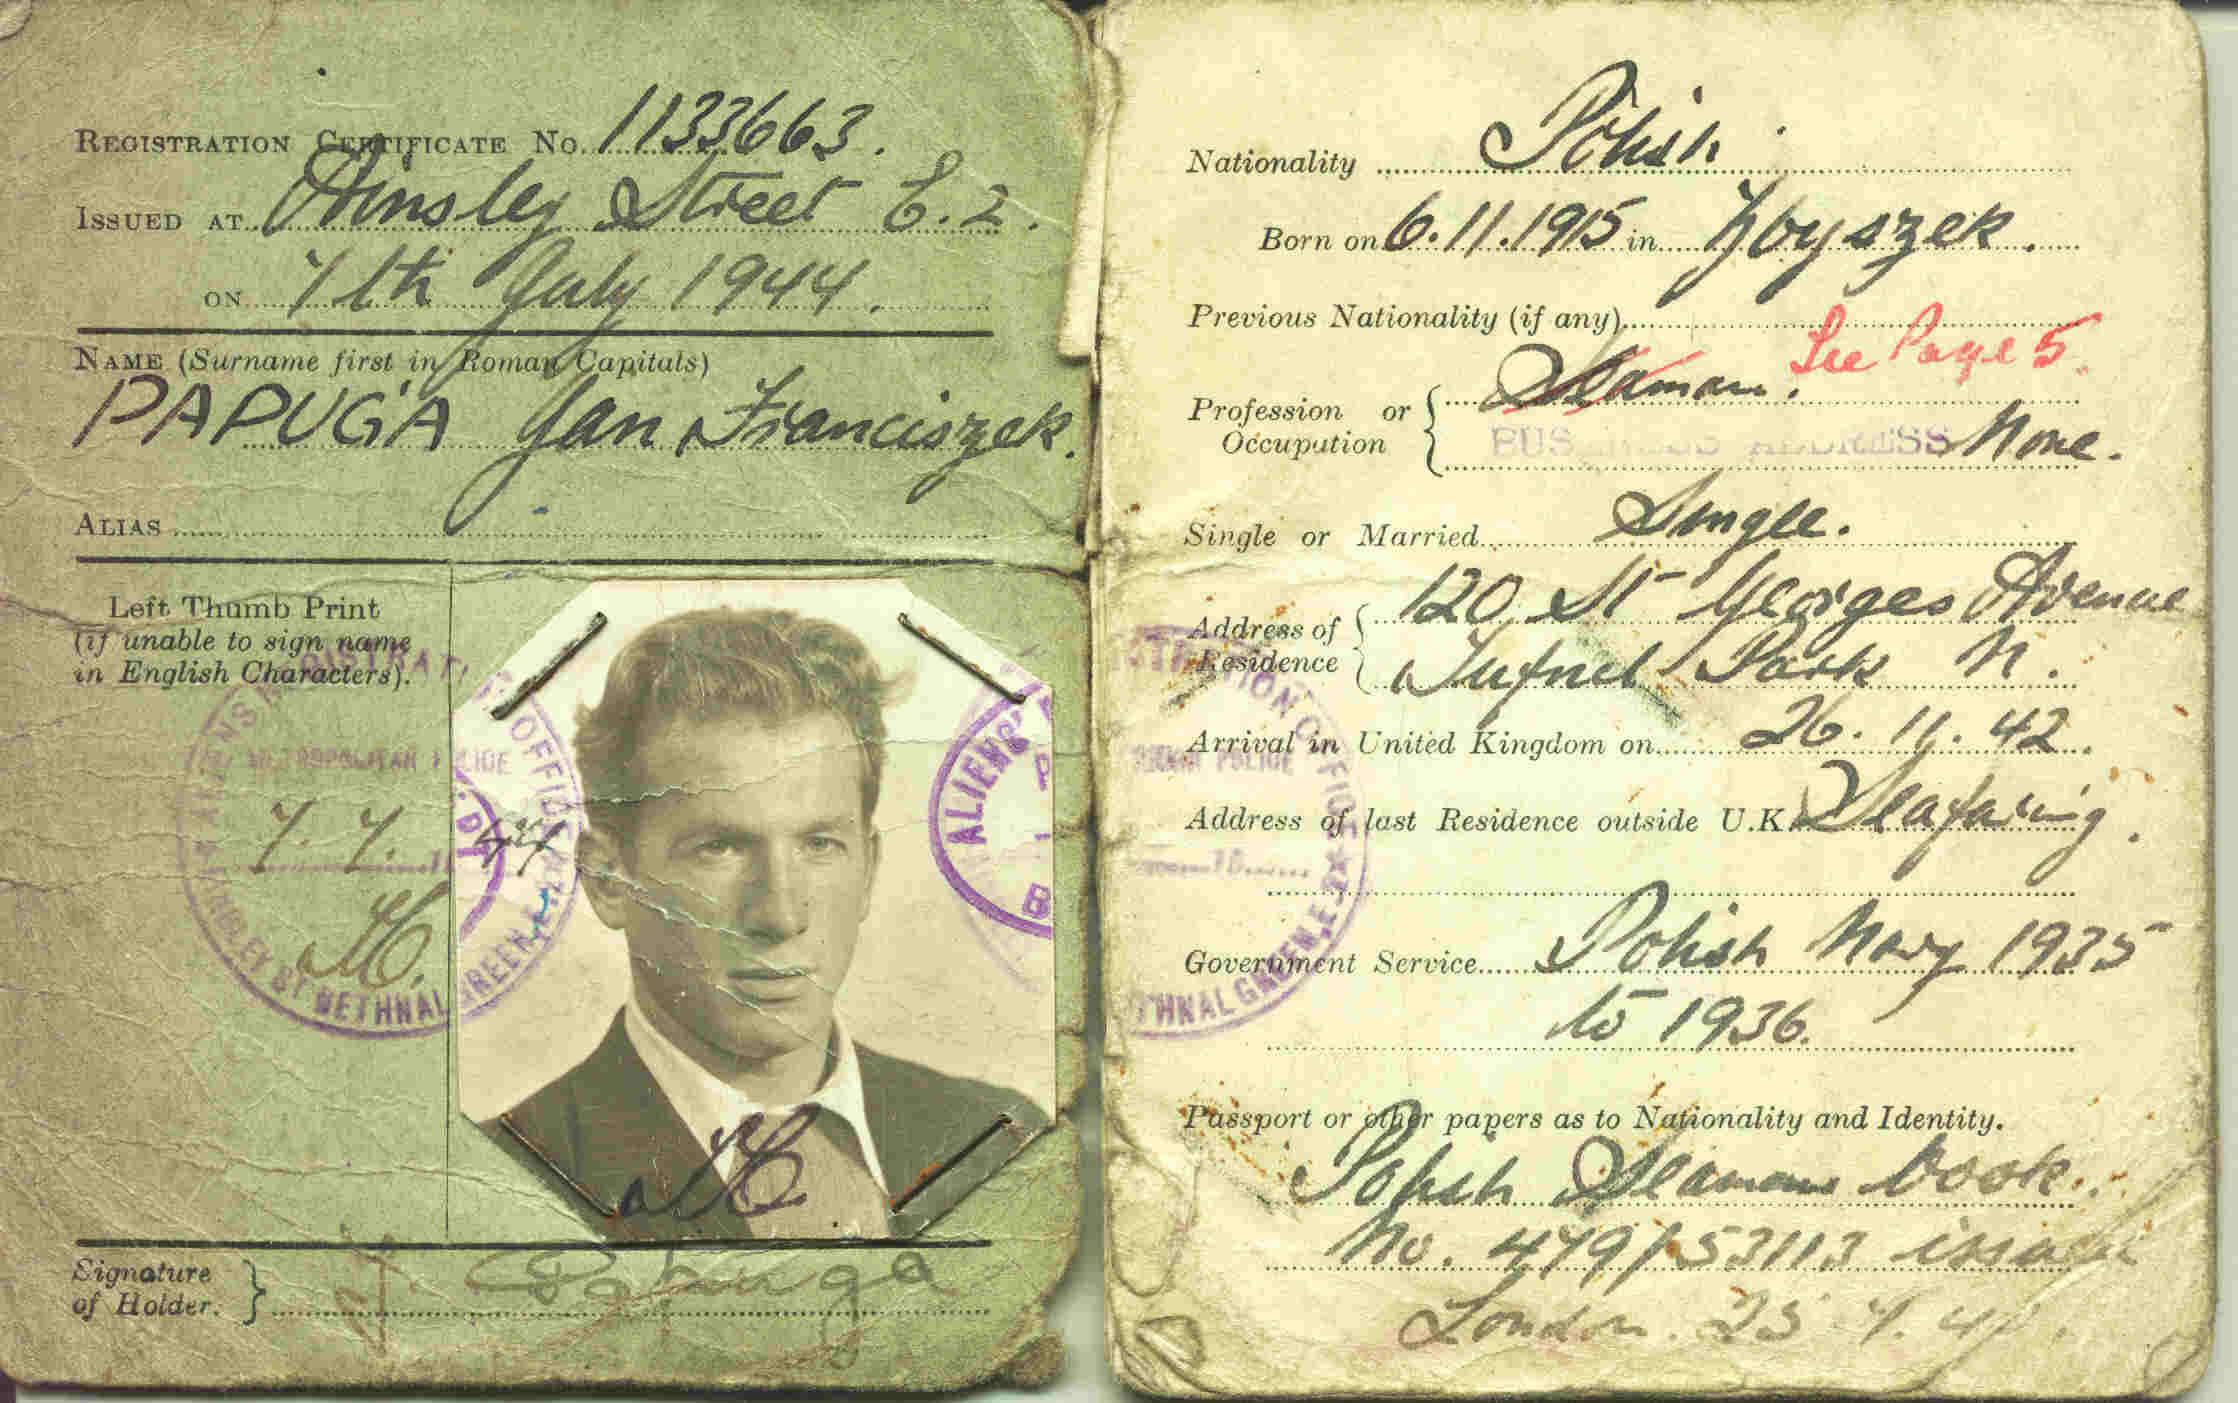 REGISTRATION CERTIFICATE No. 1133663.
ISSUED AT Ainsley Street E.2.
ON 7th July 1944.
NAME (Surname first in Roman Capitals)
PAPUGA Jan Franciszek.
ALIAS
Left Thumb Print
(if unable to sign name
in English Characters).
ALIENS REGISTRATION OFFICE
METROPOLITAN POLICE
7. 7. 44
BETHNAL GREEN, E.2
ALIENS
Signature
of Holder.
J. Papuga
Nationality Polish
Born on 6.11.1915 in Zbyszek.
Previous Nationality (if any)
See Page 5.
Profession or
Occupation
Seaman.
BUSINESS ADDRESS None.
Single or Married Single.
Address of
Residence
120 St Georges Avenue
Tufnel Park N.
Arrival in United Kingdom on 26.11.42.
Address of last Residence outside U.K. Seafaring.
Government Service Polish Navy 1935
to 1936.
ETHNAL GREEN, E.2
Passport or other papers as to Nationality and Identity.
Polish Seamans book.
No. 479/53113 issued
London. 25.7.4